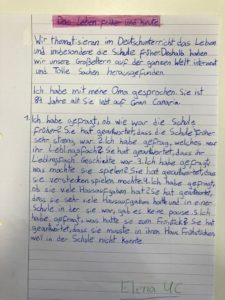 Das Leben früher und heute
Wir thematisieren im Deutschunterricht das Leben
und insbesondere die Schule früher. Deshalb haben
wir unsere Großeltern auf der ganzen Welt interviewt
und tolle Sachen herausgefunden.
Ich habe mit meine Oma gesprochen. Sie ist
84 Jahre alt. Sie lebt auf Gran Canaria.
1. Ich habe gefragt, ob wie war die Schule
früher? Sie hat geantwortet, dass die Schule früher
sehr streng war. 2. Ich habe gefragt, welches war
ihr Lieblingsfach? Sie hat geantwortet, dass ihr
Lieblingsfach Geschichte war. 3. Ich habe gefragt,
was möchte sie spielen? Sie hat geantwortet, dass
sie verstecken spielen möchte. 4. Ich habe gefragt,
ob sie viele Hausaufgaben hat? Sie hat geantwortet,
dass sie sehr viele Hausaufgaben hatte und in einer
Schule in der sie war, gab es keine pause. 5. Ich
habe gefragt, was hatte sie zum Frühstück? Sie hat
geantwortet, dass sie musste in ihren Haus frühstücken,
weil in der Schule nicht konnte.
Elena 4C